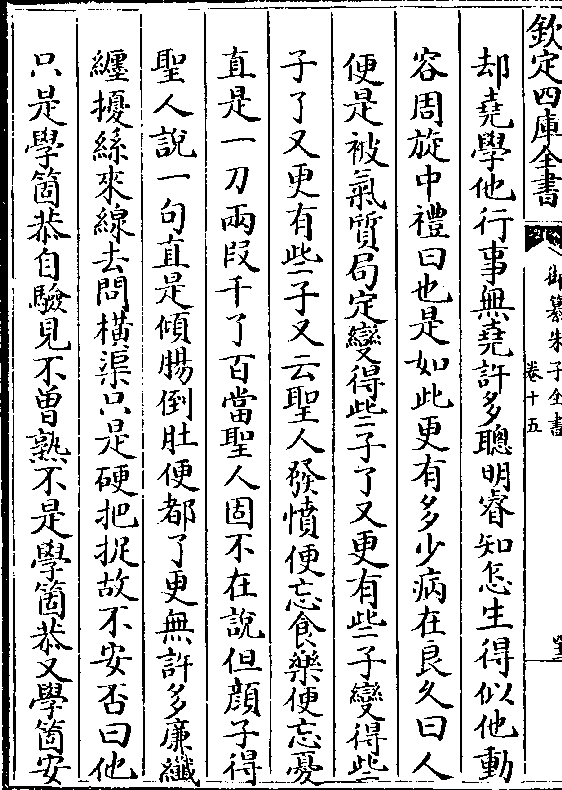 欽定四庫全書
御纂朱子全書
卷十五
却堯學他行事無堯許多聰明睿知怎生得似他動
容周旋中禮曰也是如此更有多少病在良久曰人
便是被氣質局定變得些子了又更有些子變得些
子了又更有些子又云聖人發憤便忘食樂便忘憂
直是一刀兩段千了百當聖人固不在說但顔子得
聖人說一句直是傾腸倒肚便都了更無許多廉纖
纒擾絲來線去問橫渠只是硬把捉故不安否曰他
只是學箇恭自驗見不曽熟不是學箇恭又學箇安